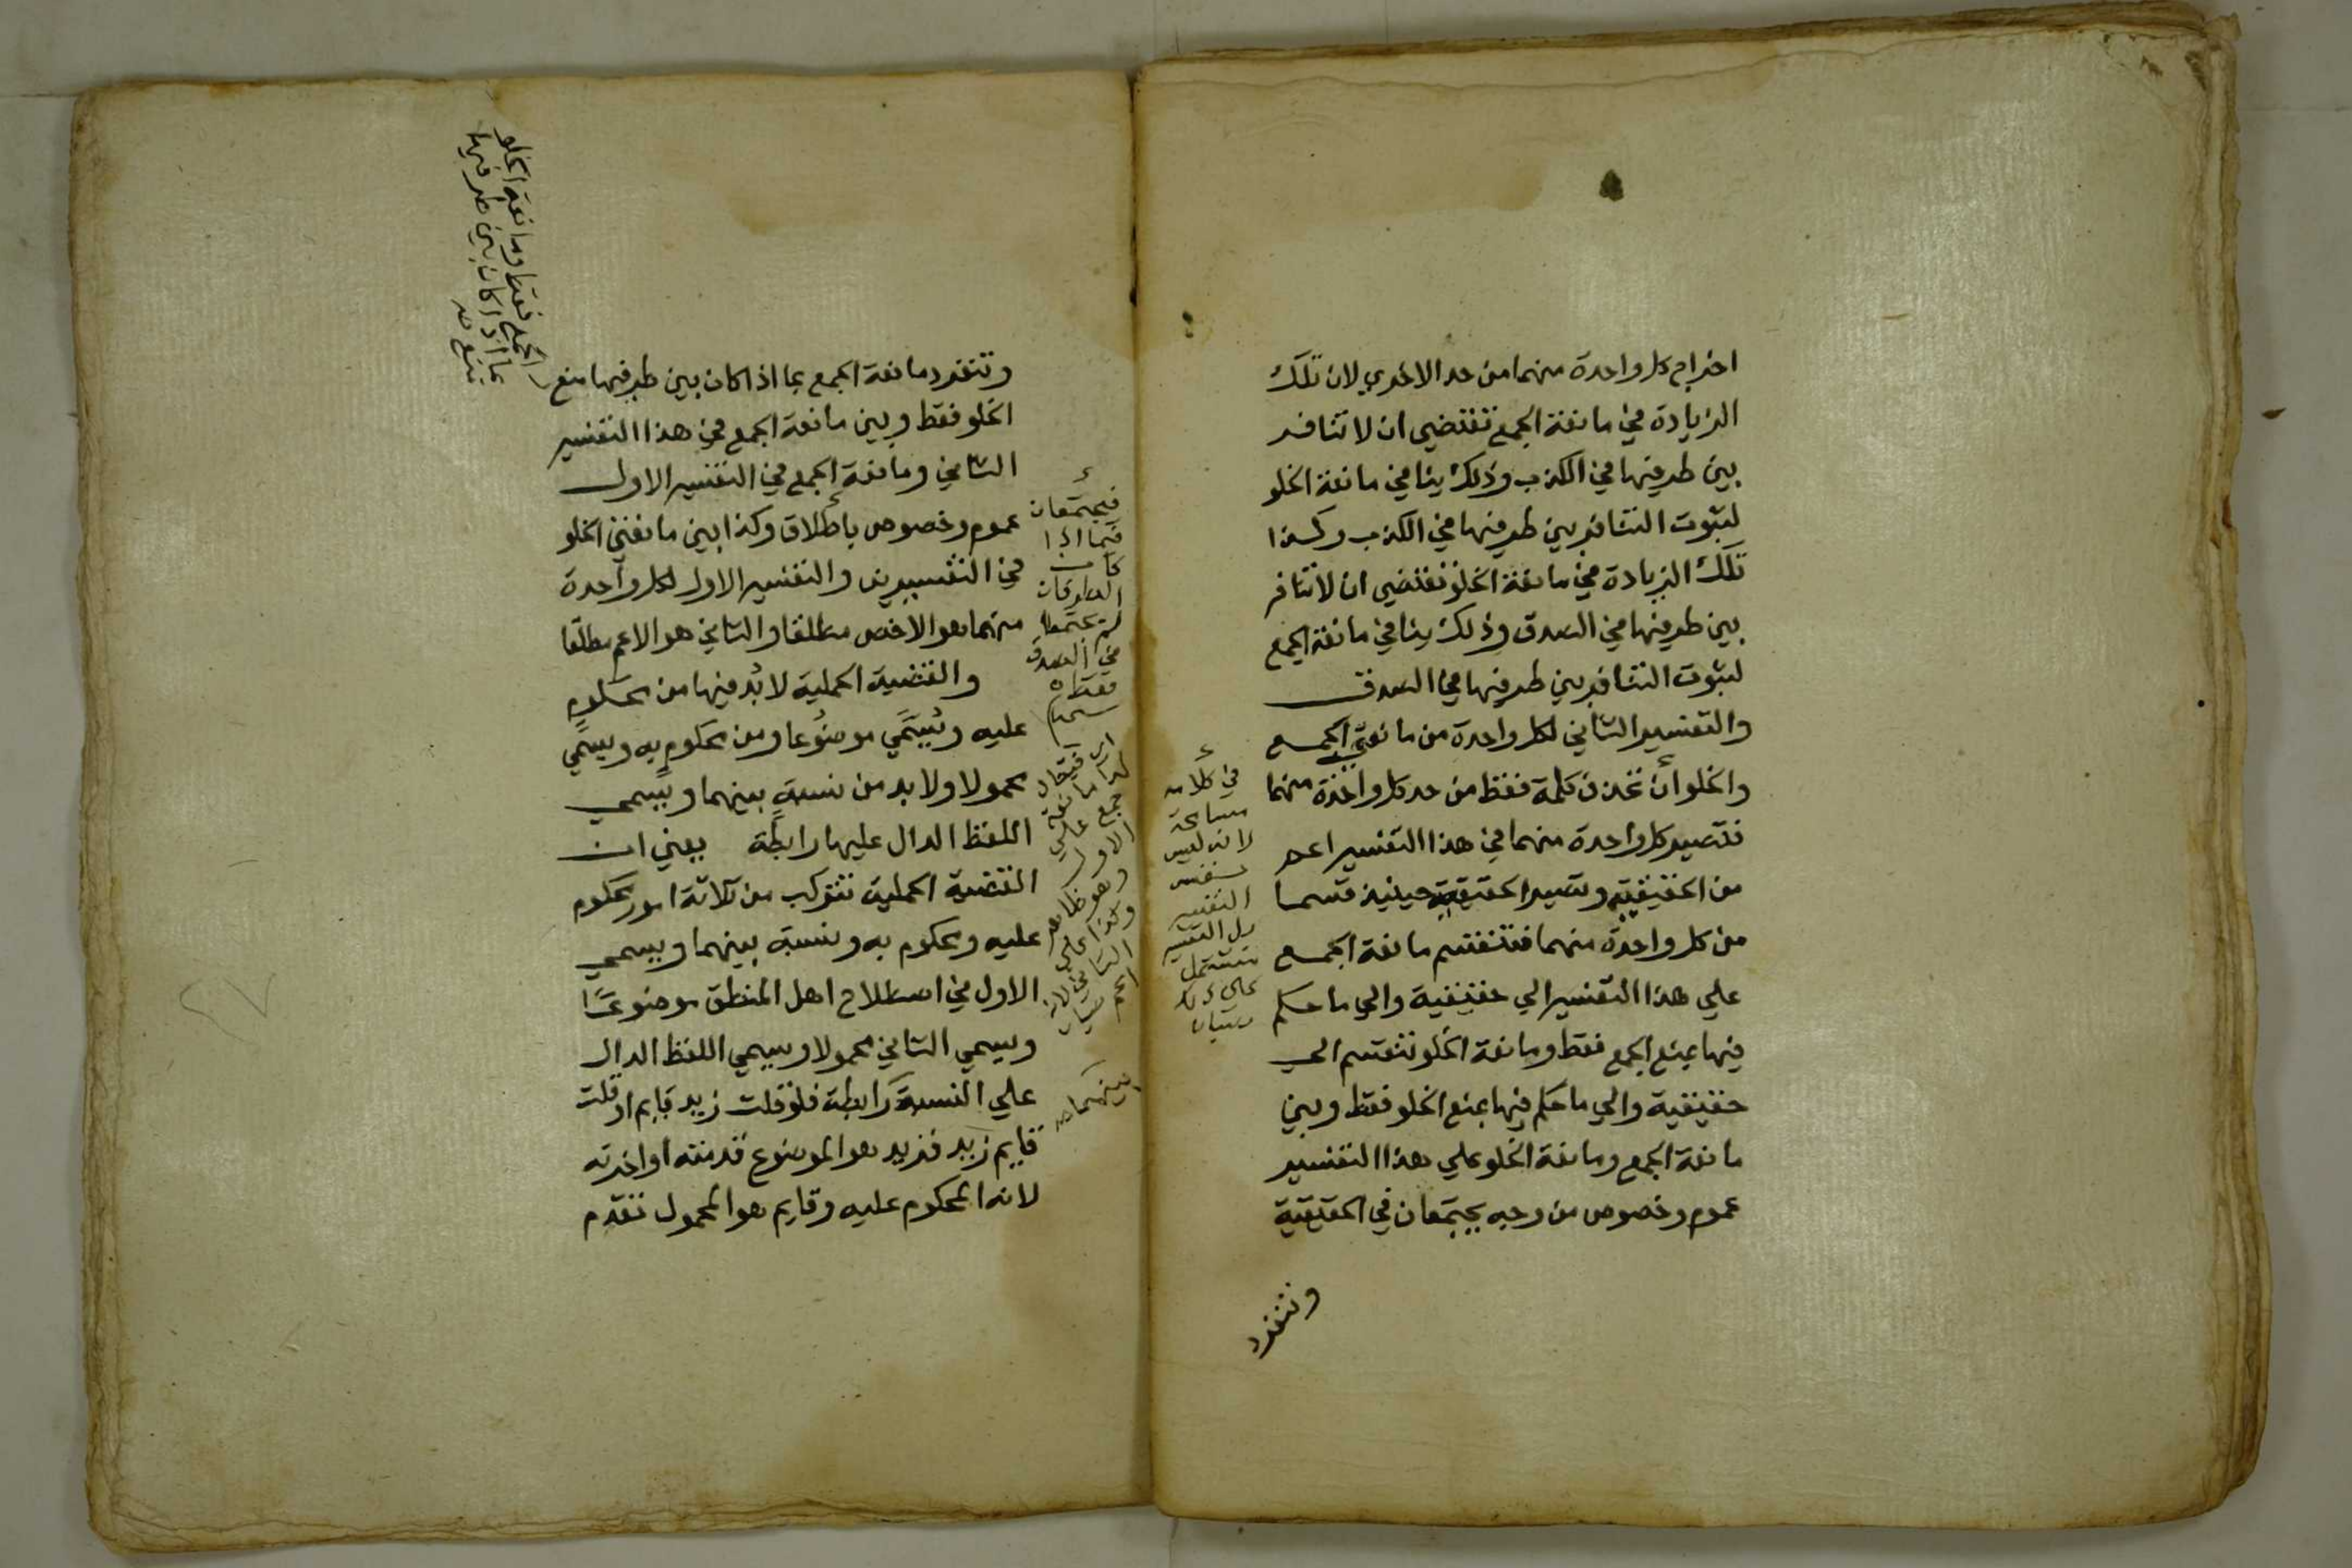 اخراج كل واحدة منهما من حد الاخري لان تلك
الزيادة في مانعة الجمع تقتضي ان لا تنافر
بين طرفيها في الكذب وذلك ينافي مانعة الخلو
لثبوت التنافر بين طرفيها في الكذب وكذا
تلك الزيادة في مانعة الخلو تقتضي ان لا تنافر
بين طرفيها في الصدق وذلك ينافي مانعة الجمع
لثبوت التنافر بين طرفيها في الصدق
والتفسير الثاني لكل واحدة من مانعتي الجمع
والخلو أن تحذف كلمة فقط من حد كل واحدة منهما
فتصير كل واحدة منهما في هذا التفسير اعم
من الحقيقية وتصير الحقيقية حينيذ قسما
من كل واحدة منهما فتنقسم مانعة الجمع
علي هذا التفسير الي حقيقية والي ما حكم
فيها بمنع الجمع فقط ومانعة الخلو تنقسم الي
حقيقية والي ما حكم فيها بمنع الخلو فقط وبين
مانعة الجمع ومانعة الخلو علي هذا التفسير
عموم وخصوص من وجه يجتمعان في الحقيقية
وتنفرد
في كلامه
مسامحة
لانه ليس
نفس
التفسير
بل التفسير
مشتمل
على ذلك
وتنفرد مانعة الجمع بما اذا كان بين طرفيها منع
الخلو فقط وبين مانعة الجمع في هذا التفسير
الثاني ومانعة الجمع في التفسير الاول
عموم وخصوص باطلاق وكذا بين مانعتي الخلو
في التفسيرين والتفسير الاول لكل واحدة
منهما هو الاخص مطلقا والثاني هو الاعم مطلقا
والقضية الحملية لا بُد فيها من محكوم
عليه ويُسَمَّي موضُوعا ومن محكومٍ به ويسمَّي
محمولا ولا بد من نسبةٍ بينهما ويسمي
اللفظ الدال عليها رابطة يعني ان
القضية الحملية تتركب من ثلاثة امور محكوم
عليه ومحكوم به ونسبة بينهما ويسمي
الاول في اصطلاح اهل المنطق موضوعًا
ويسمي الثاني محمولا ويسمي اللفظ الدال
علي النسبة رابطة فلو قلت زيد قايم او قلت
قايم زيد فزيد هو الموضوع قدمته او اخرته
لانه المحكوم عليه وقايم هو المحمول تقدم
الجمع فقط ومانعة الخلو
بما اذا كان بين طرفيها
منع
فيجتمعان
فيما اذا
كان
الطرفان
لم يجتمعا
في الصدق
فقط
جمع علي
الاول
وهو ظاهر
وكذا علي
الثاني لانه
اعم